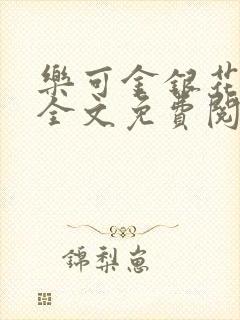 樂可金銀花
全文免費閱
錦梨崽